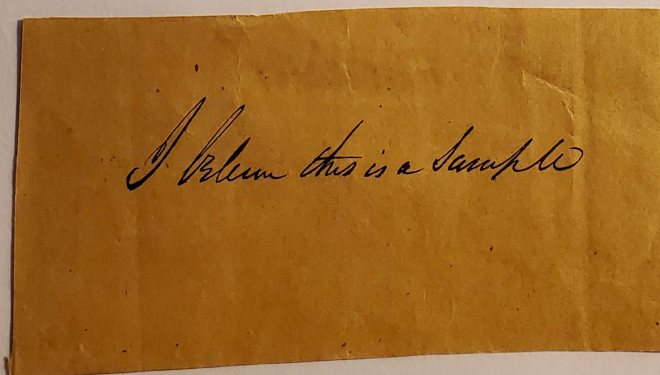 I Believe this is a Sample